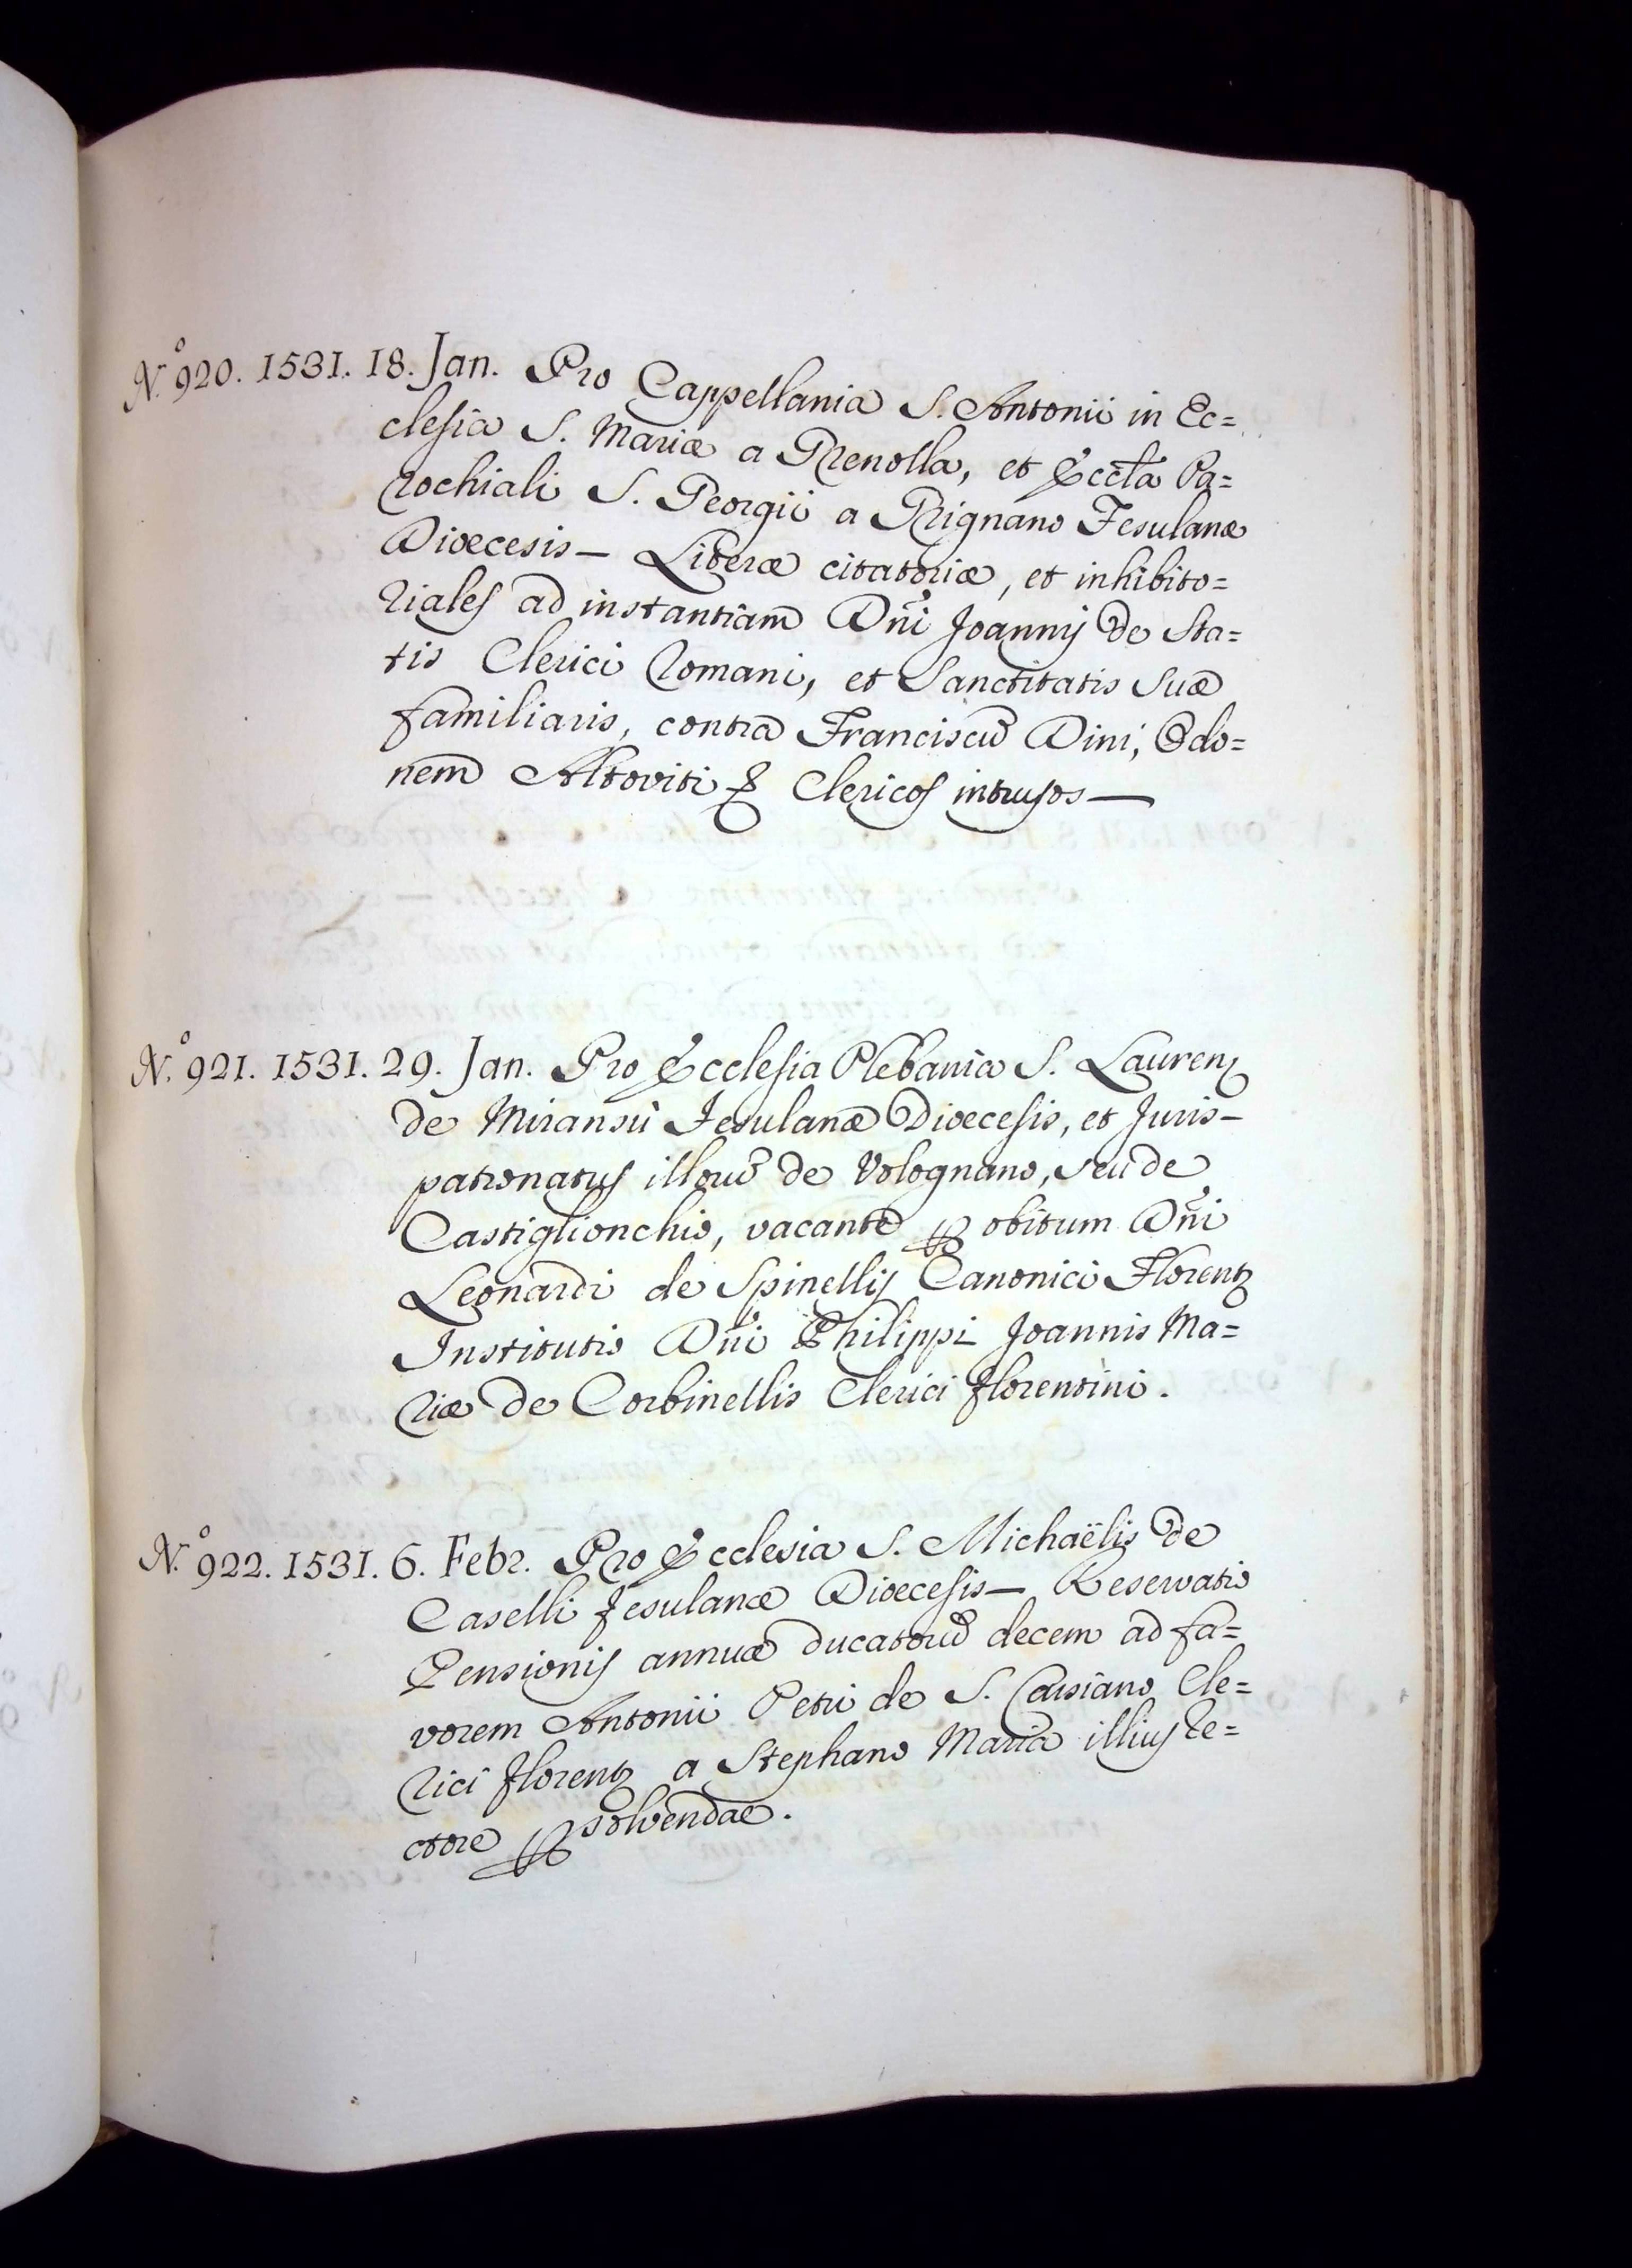 N.º 920. 1531. 18. Jan. Pro Cappellania S. Antonii in Ec=
clesia S. Mariæ a Grenolla, et Eccta Pa=
rochiali S. Georgii a Rignano Fesulanæ
Diœcesis — Literæ citatoriæ, et inhibito=
riales ad instantiam Dñi Joannis de Sta=
tis Clerici Romani, et Sanctitatis Suæ
familiaris, contra Franciscũ Dini, Odo=
nem Altoviti & Clericos intrusos —
N.º 921. 1531. 29. Jan. Pro Ecclesia Plebania S. Laurenz
de Miransù Fesulanæ Diœcesis, et Juris-
patronatus illorũ de Volognano, seu de
Castiglionchio, vacante ꝑ obitum Dñi
Leonardi de Spinellis Canonici Florentz
Institutio Dñi Philippi Joannis Ma=
riæ de Corbinellis Clerici florentini.
N.º 922. 1531. 6. Febr. Pro Ecclesia S. Michaëlis de
Caselli fesulanæ Diœcesis — Reservatio
Pensionis annuæ ducatorũ decem ad fa=
vorem Antonii Petri de S. Cassiano Cle=
rici florentz a Stephano Maria illius Re=
ctore ꝑsolvendae.